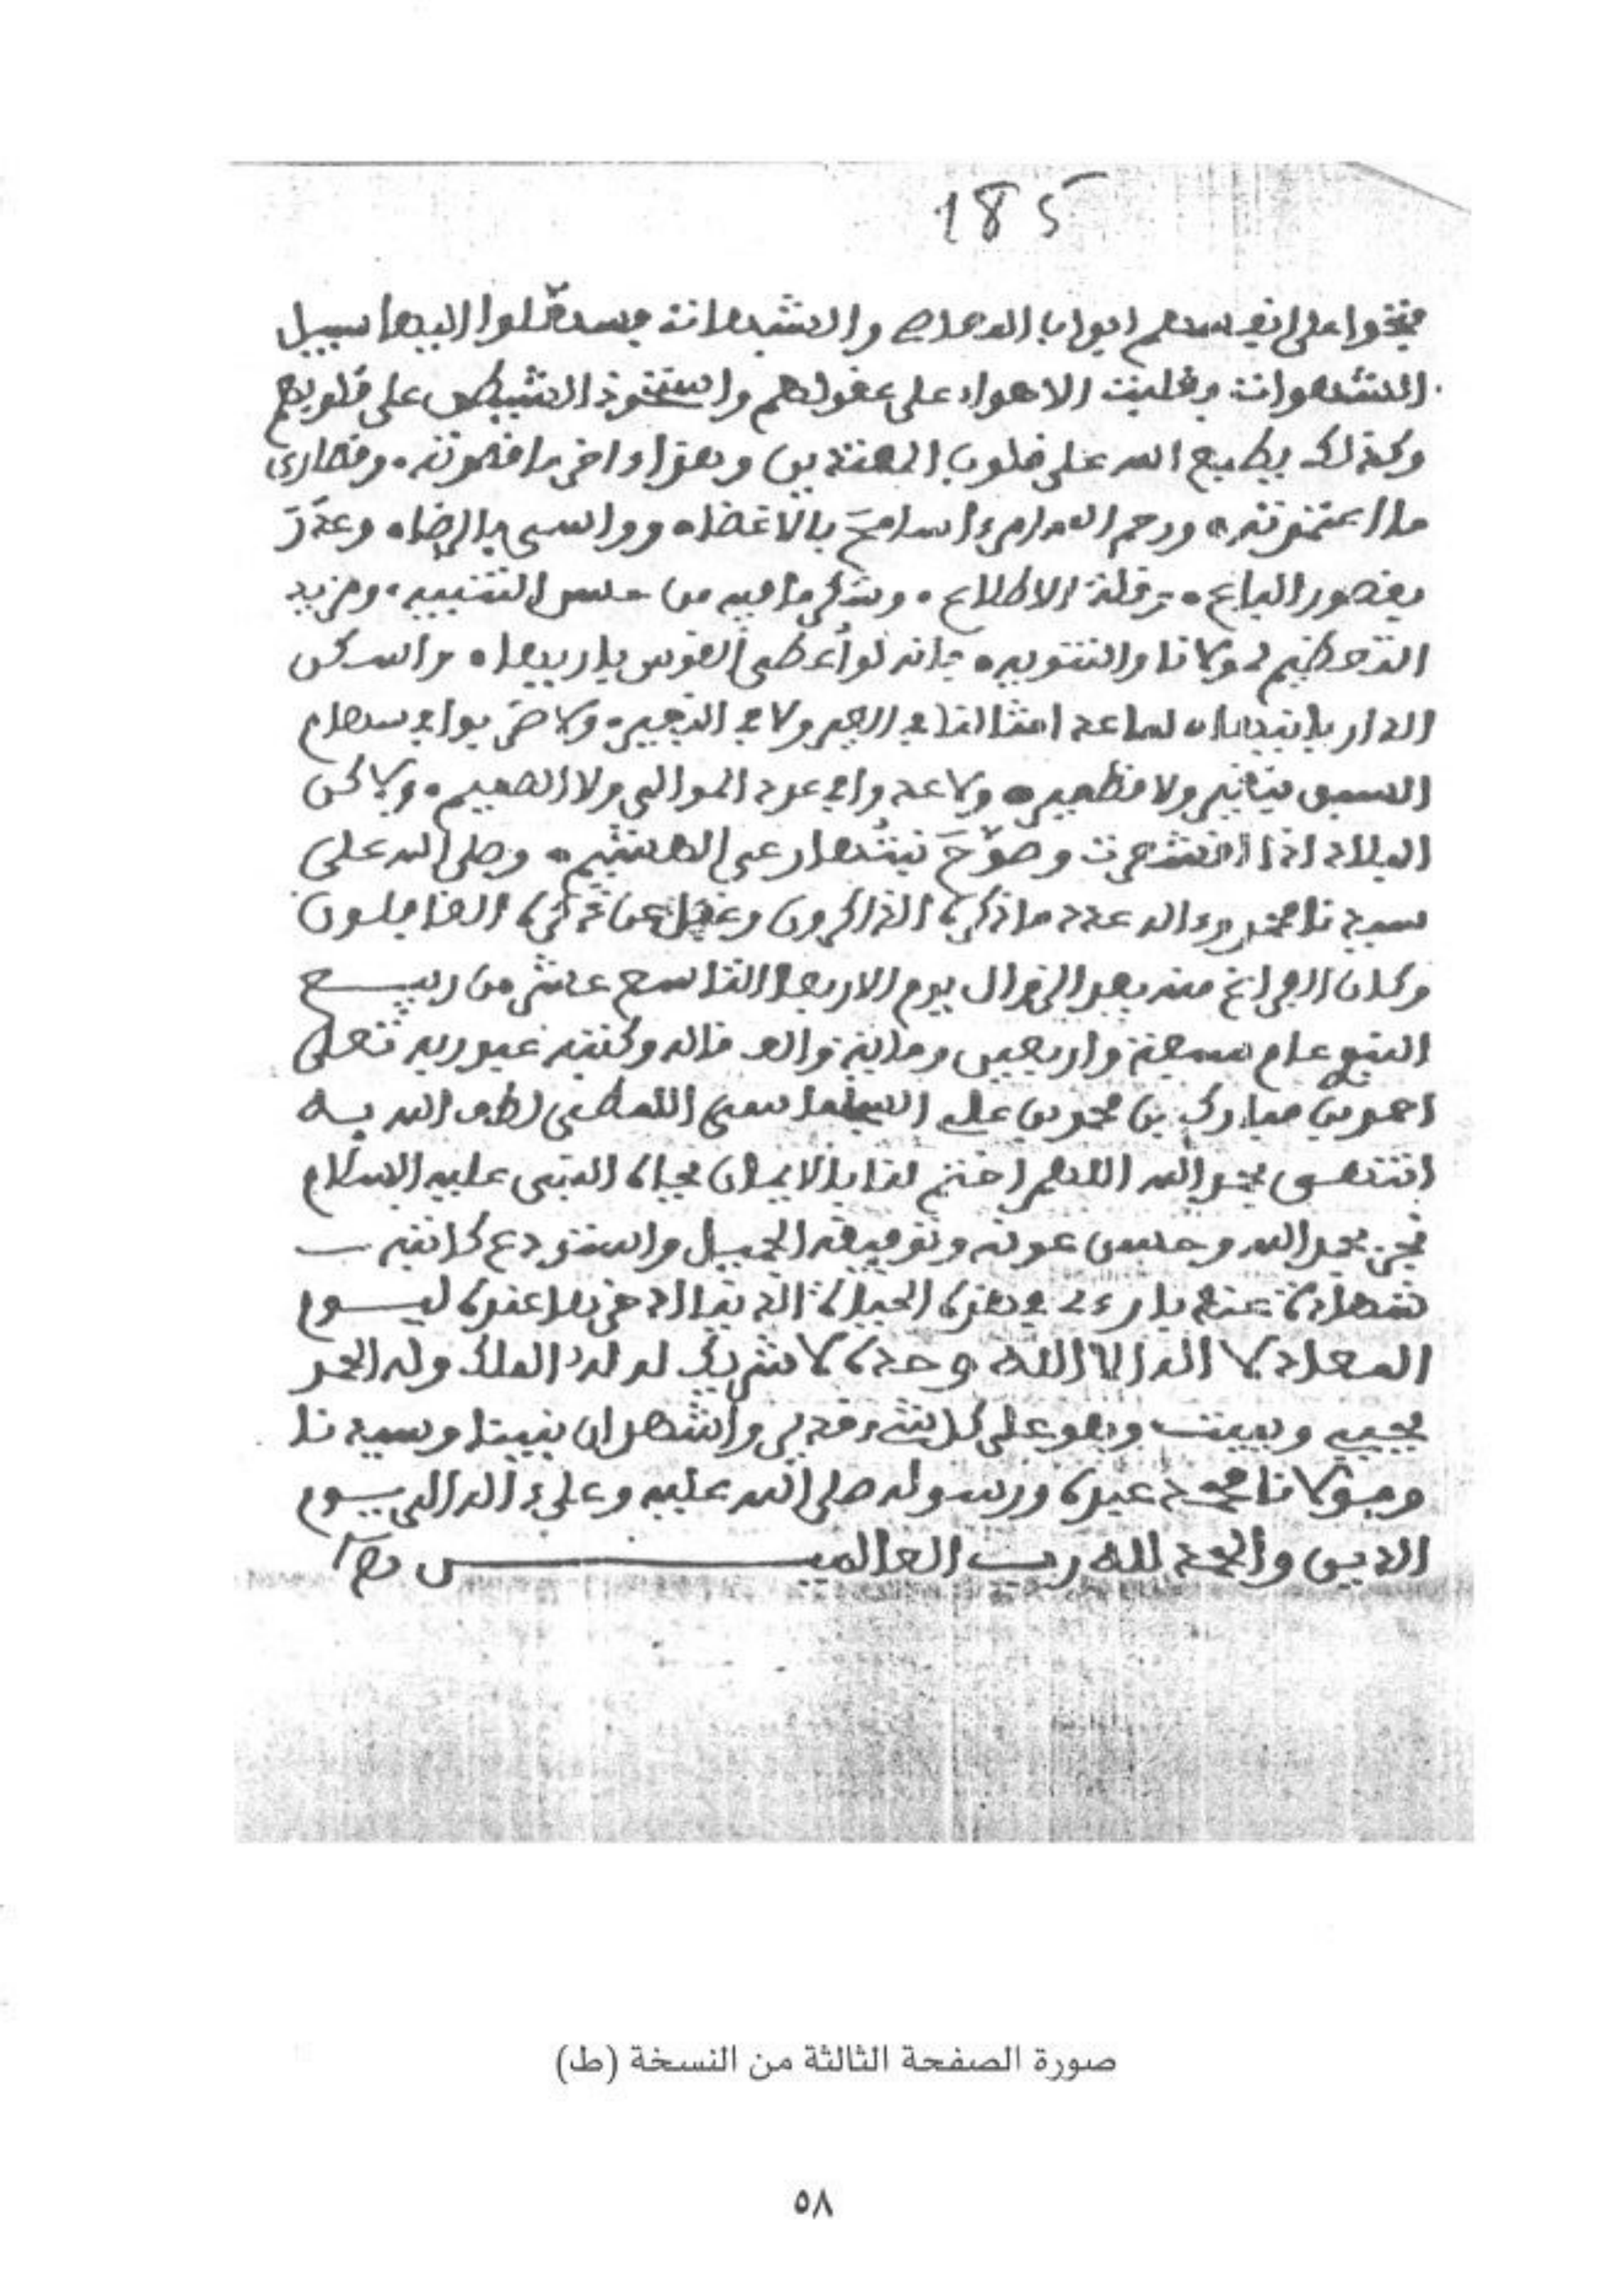 185
على انفسهم ابواب الدعاوي والشبهات فسهلوا اليها سبيل
الشهوات وغلبت الاهواء على عقولهم واستحوذ الشيطن على قلوبهم
وكذلك يطبع الله على قلوب المعتدين وهذا اخر ما قصدته وقصارى
ما اعتمدته ورحم الله امرءا سامح بالاغضاء وواسى بالرضاء وعذر
بقصور الباع وقلة الاطلاع وشكر ما فيه من حسن التنبيه ومزيد
التعظيم لمولانا والتنويه فانه لو أعطي القوس باريها واسكن
الدار بانيها لما عد امثالنا في العير ولا في النفير ولا ضربوا في سهام
السبق بنافس ولا ولا عدوا في عدد الموالي ولا الصميم ولاكن
البلاد اذا اقشعرت وصوح نبتها رعي الهشيم وصلى الله على
سيدنا محمد وءاله عدد ما ذكره الذاكرون وغفل عن ذكره الغافلون
وكان الفراغ منه بعد الزوال يوم الاربعا التاسع عشر من ربيع
النبوي عام سبعة واربعين وماية والف قاله وكتبه عبد ربه تعلى
احمد بن مبارك بن محمد بن علي السجلماسي اللمطي لطف الله به
انتهى بحمد الله اللهم اختم لنا بالايمان بجاه النبي عليه السلام
نجز بحمد الله وحسن عونه وتوفيقه الجميل واستودع كاتبه
شهادة عند بارءه في هذه الحياة الدنيا ادخرها عنده ليوم
المعاد لا اله الا الله وحده لا شريك له له الملك وله الحمد
يحيي ويميت وهو على كل شيء قدير واشهد ان نبينا وسيدنا
ومولانا محمد عبده ورسوله صلى الله عليه وعلى ءاله الى يوم
الدين والحمد لله رب العالمين
صورة الصفحة الثالثة من النسخة (ط)
٥٨